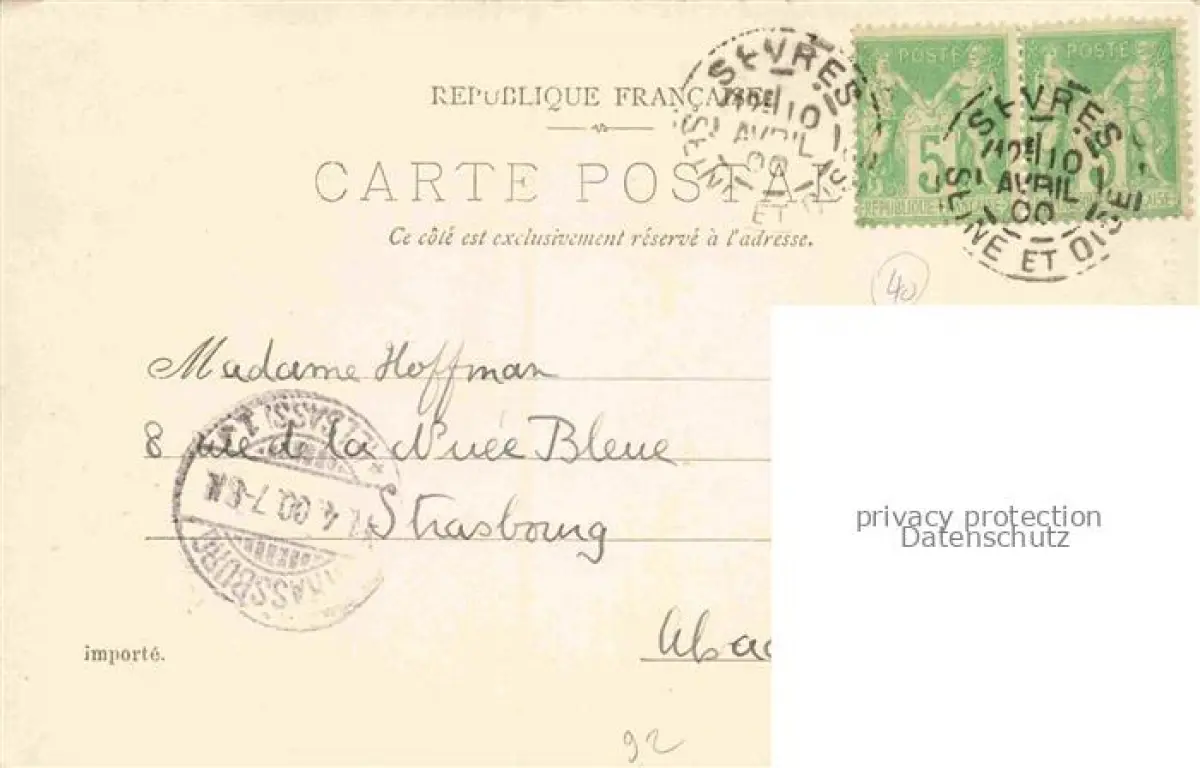 RÉPUBLIQUE FRANÇAISE
CARTE POSTALE
Ce côté est exclusivement réservé à l'adresse.
POSTE
5
RÉPUBLIQUE FRANÇAISE
POSTE
5
RÉPUBLIQUE FRANÇAISE
SÈVRES
10
AVRIL
00
SEINE ET OISE
SÈVRES
10
AVRIL
00
SEINE ET OISE
40
Madame Hoffman
8 rue de la Nuée Bleue
Strasbourg
Alsac
STRASSBURG
4.00.7-8
(ELSASS)
importé.
92
privacy protection
Datenschutz